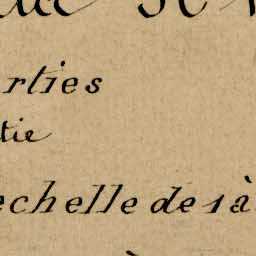 rties
tie
echelle de 1 à